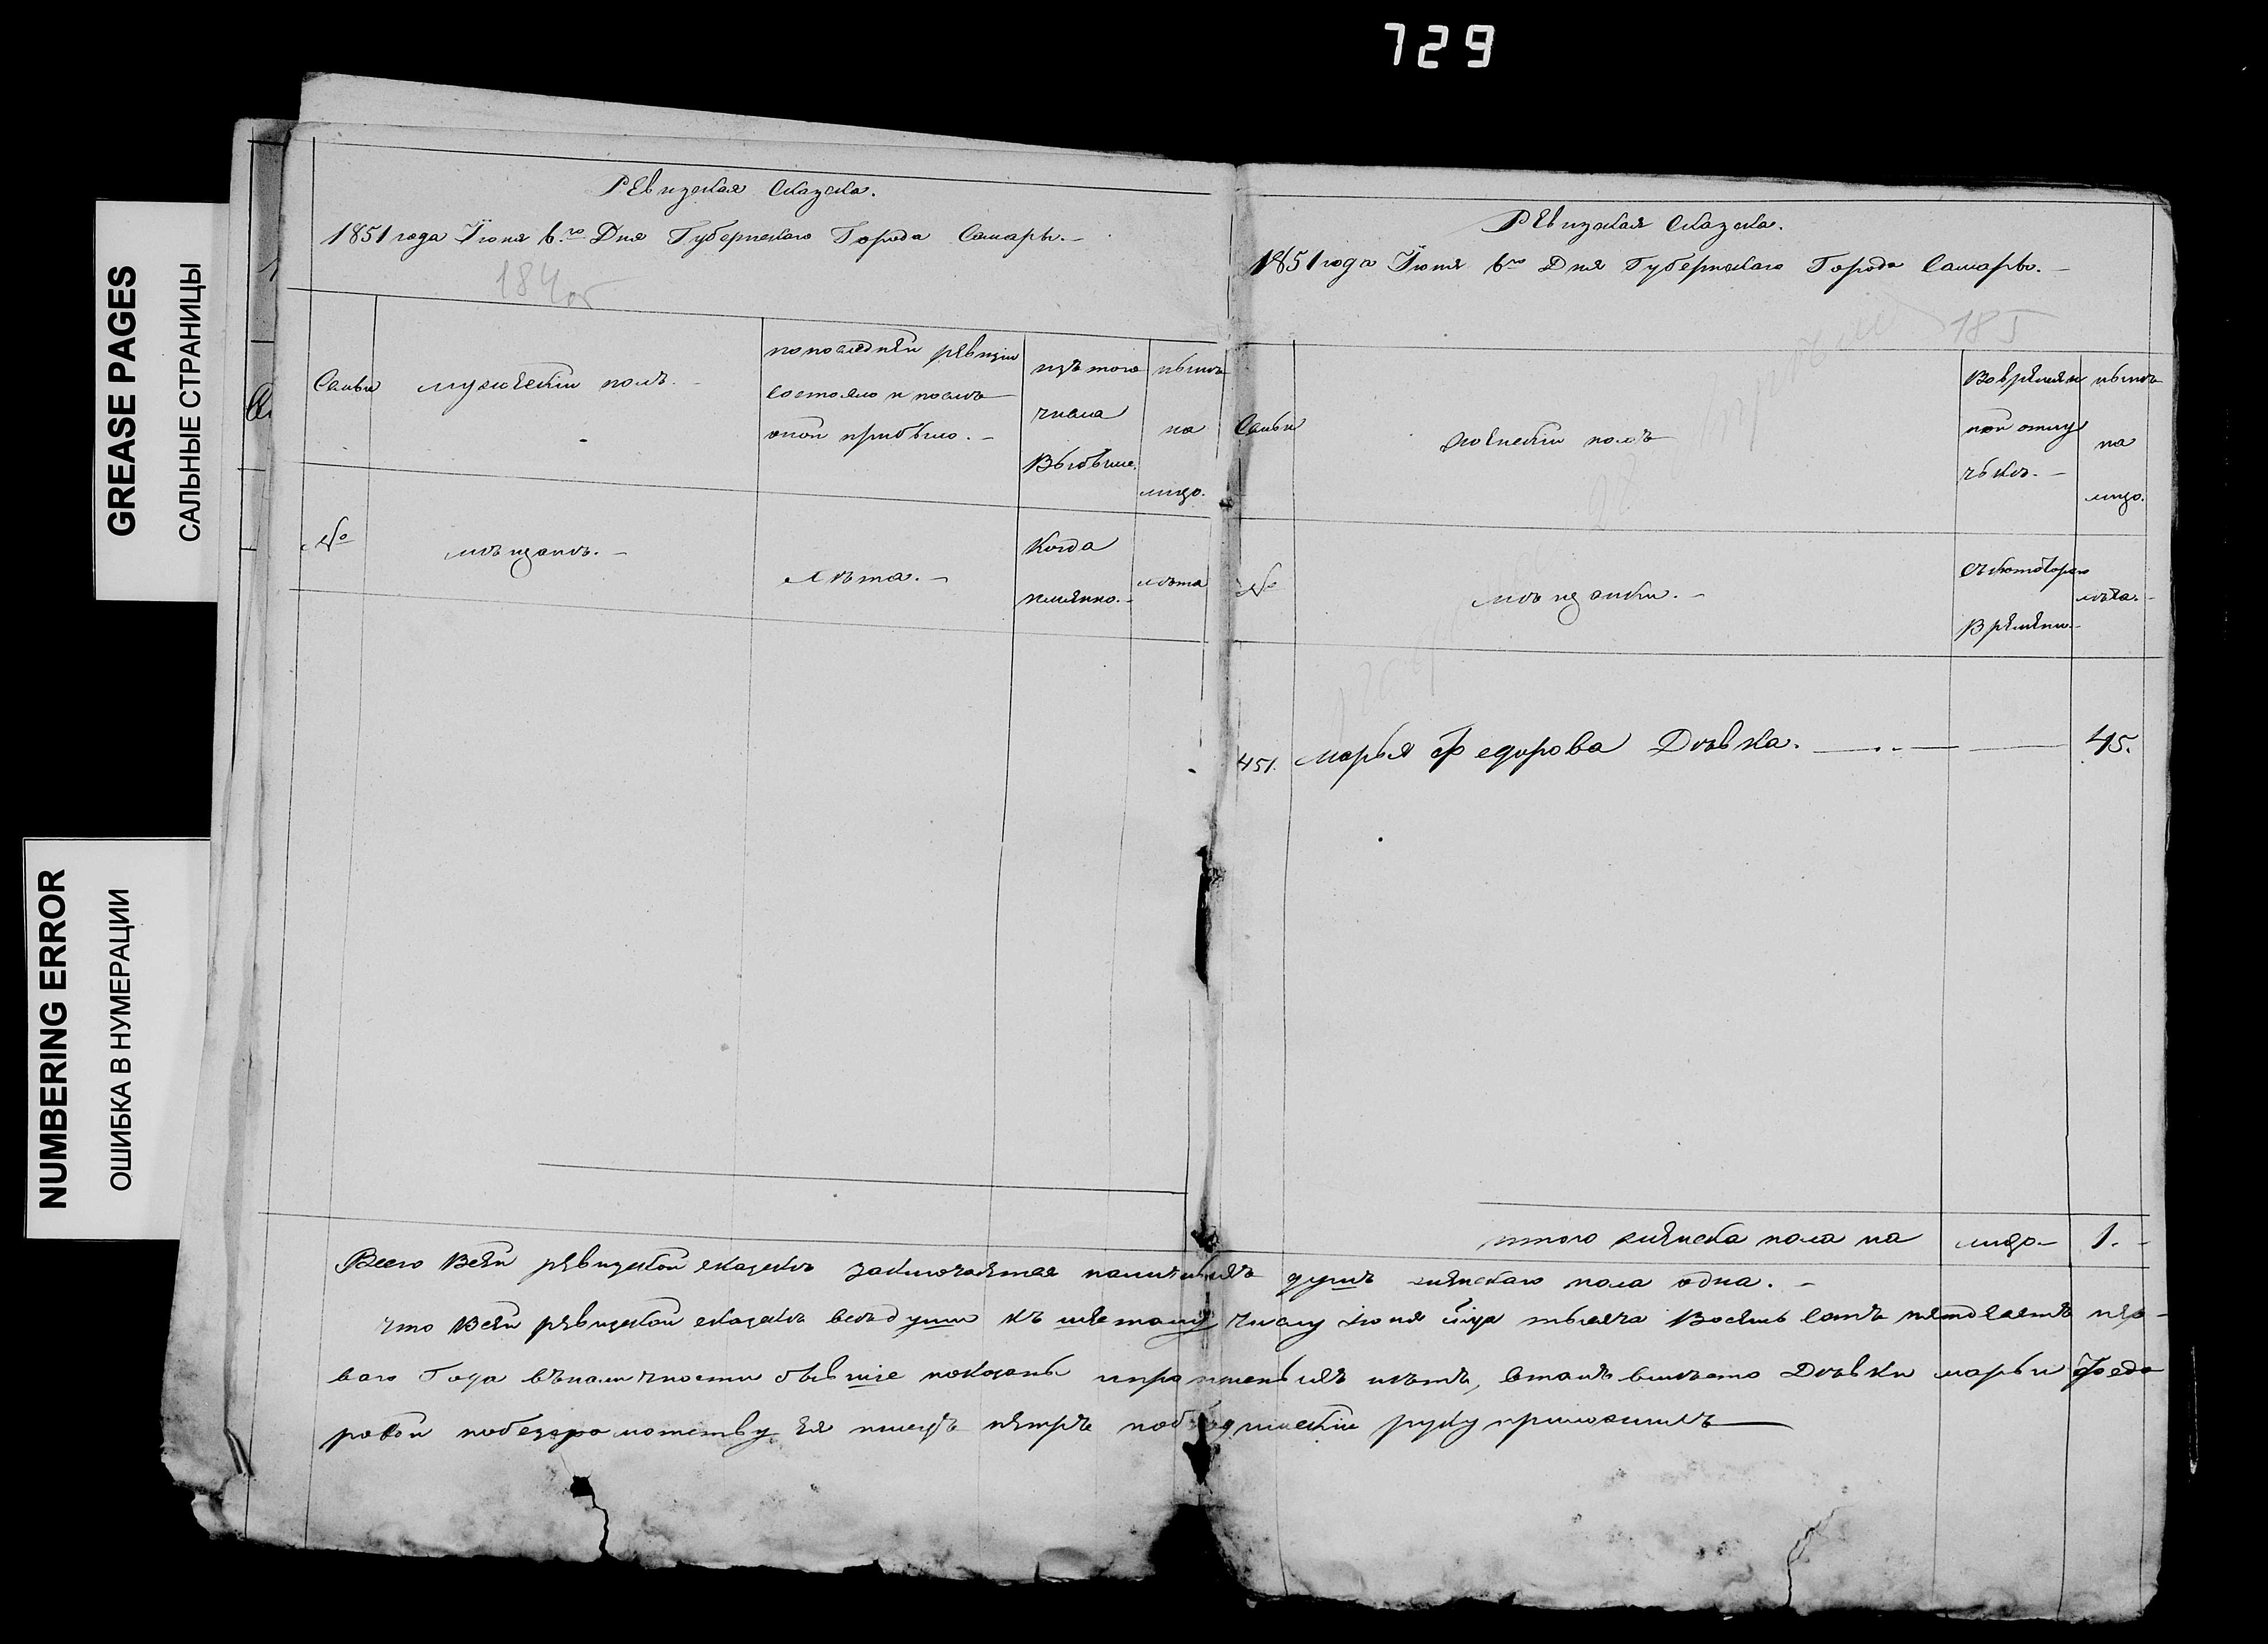 729
GREASE PAGES
САЛЬНЫЕ СТРАНИЦЫ
NUMBERING ERROR
ОШИБКА В НУМЕРАЦИИ
Ревизская Сказка.
1851 года Іюня 6.го Дня Губернскаго Города Самары.
184об
Семьи
мужескій полъ.
по последнѣй ревизіи
состояло и послѣ
оной прибыло.
изъ того
числа
Выбыло.
нынѣ
на
лицо.
№
мѣщанѣ.
Лѣта.
Когда
имянно.
лѣта
Ревизская Сказка.
1851 года Іюня 6го Дня Губернскаго Города Самары.
185
Семьи
женскій полъ
Во времянной отлучькѣ.
нынѣ
на
лицо.
№
мѣщанки.
съ котораго
Времени.
лѣта.
451. Марья Федорова Дѣвка. 45.
итого женска пола на лицо 1.
Всего Всей ревизской сказкѣ заключается наличныхъ душъ женскаго пола одна.
что Всей ревизской сказкѣ всѣ души къ шестому числу Іюня тысяча Восемь сотъ пятдесятъ пер-
ваго Года въ наличности бывшіе показаны и прописныхъ нѣтъ, втомъ вмѣсто Дѣвки Марьи Федо
ровой побезграмотству ея Петръ руку приложилъ